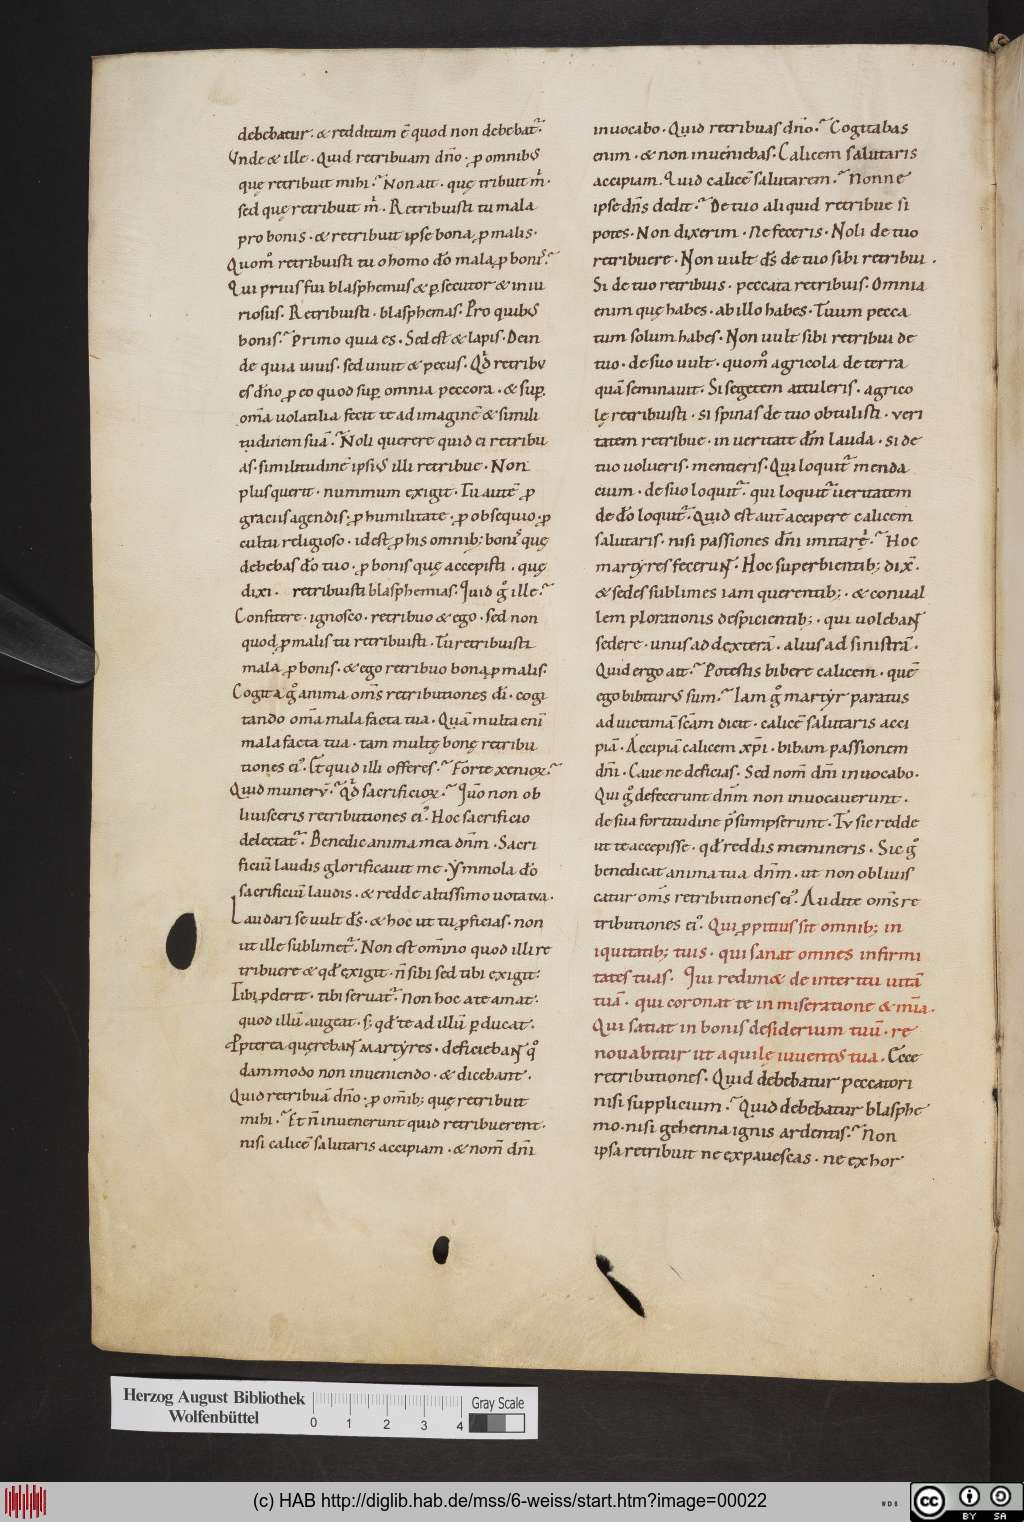 debebatur. & redditum ē quod non debebat̄.
Vnde & ille. Quid retribuam dn̄o. ꝓ omnibꝰ
quę retribuit mihi. Non ait. quę tribuit m̍.
sed quę retribuit m̍. Retribuisti tu mala
pro bonis. & retribuit ipse bona ꝓ malis.
Quom̊ retribuisti tu o homo dō mala ꝓ bonis.
Qui prius fui blasphemus & ꝑsecutor & iniu
riosus. Retribuisti. blasphemas. Pro quibꝰ
bonis. Primo quia es. Sed est & lapis. Dein
de quia uiuis. sed uiuit & pecus. Qd̓ retribu
es dn̄o ꝓ eo quod suꝑ omnia peccora. & suꝑ
om̄a uolatilia fecit te ad imaginē & simili
tudinem suā. Noli querere quid ei retribu
as. similitudinē ipsiꝰ illi retribue. Non
plus querit. nummum exigit. Tu autē ꝓ
graciis agendis. ꝓ humilitate. ꝓ obsequio. ꝓ
cultu religioso. id est ꝓ his omnib; bonis quę
debebas dō tuo. ꝓ bonis quę accepisti. quę
dixi. retribuisti blasphemias. Quid g̊ ille.
Confitere. ignosco. retribuo & ego. sed non
quod ꝓ malis tu retribuisti. Tu retribuisti
mala ꝓ bonis. & ego retribuo bona ꝓ malis.
Cogita g̊ anima om̄s retributiones dī. cogi
tando om̄a mala facta tua. Quā multa enī
mala facta tua. tam multę bonę retribu
tiones eiꝰ. Et quid illi offeres. Forte xenioꝝ.
Quid munerū. Qd̓ sacrificioꝝ. Im̄o non ob
liuisceris retributiones eiꝰ. Hoc sacrificio
delectat̄. Benedic anima mea dn̄m. Sacri
ficiū laudis glorificauit me. Ymmola dō
sacrificiū laudis. & redde altissimo uota tua.
Laudari se uult ds̄. & hoc ut tu ꝓficias. non
ut ille sublimet̄. Non est om̄ino quod illi re
tribuere & qd̓ exigit. n̄ sibi sed tibi exigit.
Tibi ꝓderit. tibi seruat̄. Non hoc a te amat.
quod illū augeat. s; qd̓ te ad illū ꝑducat.
Ꝓpterea quęrebant martyres. deficiebant q̊
dammodo non inueniendo. & dicebant.
Quid retribuā dn̄o. ꝓ om̄ib; quę retribuit
mihi. Et n̄ inuenerunt quid retribuerent.
nisi calicē salutaris accipiam. & nom̄ dn̄i
inuocabo. Quid retribuas dn̄o. Cogitabas
enim. & non inueniebas. Calicem salutaris
accipiam. Quid calicē salutarem. Nonne
ipse dn̄s dedit. De tuo aliquid retribue si
potes. Non dixerim. Ne feceris. Noli de tuo
retribuere. Non uult ds̄ de tuo sibi retribui.
Si de tuo retribuis. peccata retribuis. Omnia
enim quę habes. ab illo habes. Tuum pecca
tum solum habes. Non uult sibi retribui de
tuo. de suo uult. quom̊ agricola de terra
quā seminauit. Si segetem attuleris. agrico
lę retribuisti. si spinas de tuo obtulisti. Veri
tatem retribue. in ueritate dn̄m lauda. si de
tuo uolueris. mentieris. Qui loquit̄ menda
cium. de suo loquit̄. qui loquit̄ ueritatem
de dō loquit̄. Quid est aut̄ accipere calicem
salutaris. nisi passiones dn̄i imitare. Hoc
martyres fecerunt. Hoc superbientib; dix̄.
& sedes sublimes iam querentib;. & conual
lem plorationis despicientib;. qui uolebant
sedere. unus ad dexterā. alius ad sinistrā.
Quid ergo ait. Potestis bibere calicem. quē
ego bibiturꝰ sum. Iam g̊ martyr paratus
ad uictimā sc̄am dicit. calicē salutaris acci
piā. Accipiā calicem xp̄i. bibam passionem
dn̄i. Caue ne deficias. Sed nom̄ dn̄i inuocabo.
Qui g̊ defecerunt dn̄m non inuocauerunt.
de sua fortitudine p̄sumpserunt. Tu sic redde
ut te accepisse. qd̓ reddis memineris. Sic g̊
benedicat anima tua dn̄m. ut non obliuis
catur om̄s retributiones eiꝰ. Audite om̄s re
tributiones eiꝰ. Qui ꝓpitius sit omnib; in
iquitatib; tuis. qui sanat omnes infirmi
tates tuas. Qui redim& de interitu uitā
tuā. qui coronat te in miseratione & mīa.
Qui satiat in bonis desiderium tuū. re
nouabitur ut aquilę iuuentꝰ tua. Ecce
retributiones. Quid debebatur peccatori
nisi supplicium. Quid debebatur blasphe
mo. nisi gehenna ignis ardentis. Non
ipsa retribuit ne expauescas. ne exhor
Herzog August Bibliothek
Wolfenbüttel
0 1 2 3 4
Gray Scale
(c) HAB http://diglib.hab.de/mss/6-weiss/start.htm?image=00022
WDB
cc
BY SA